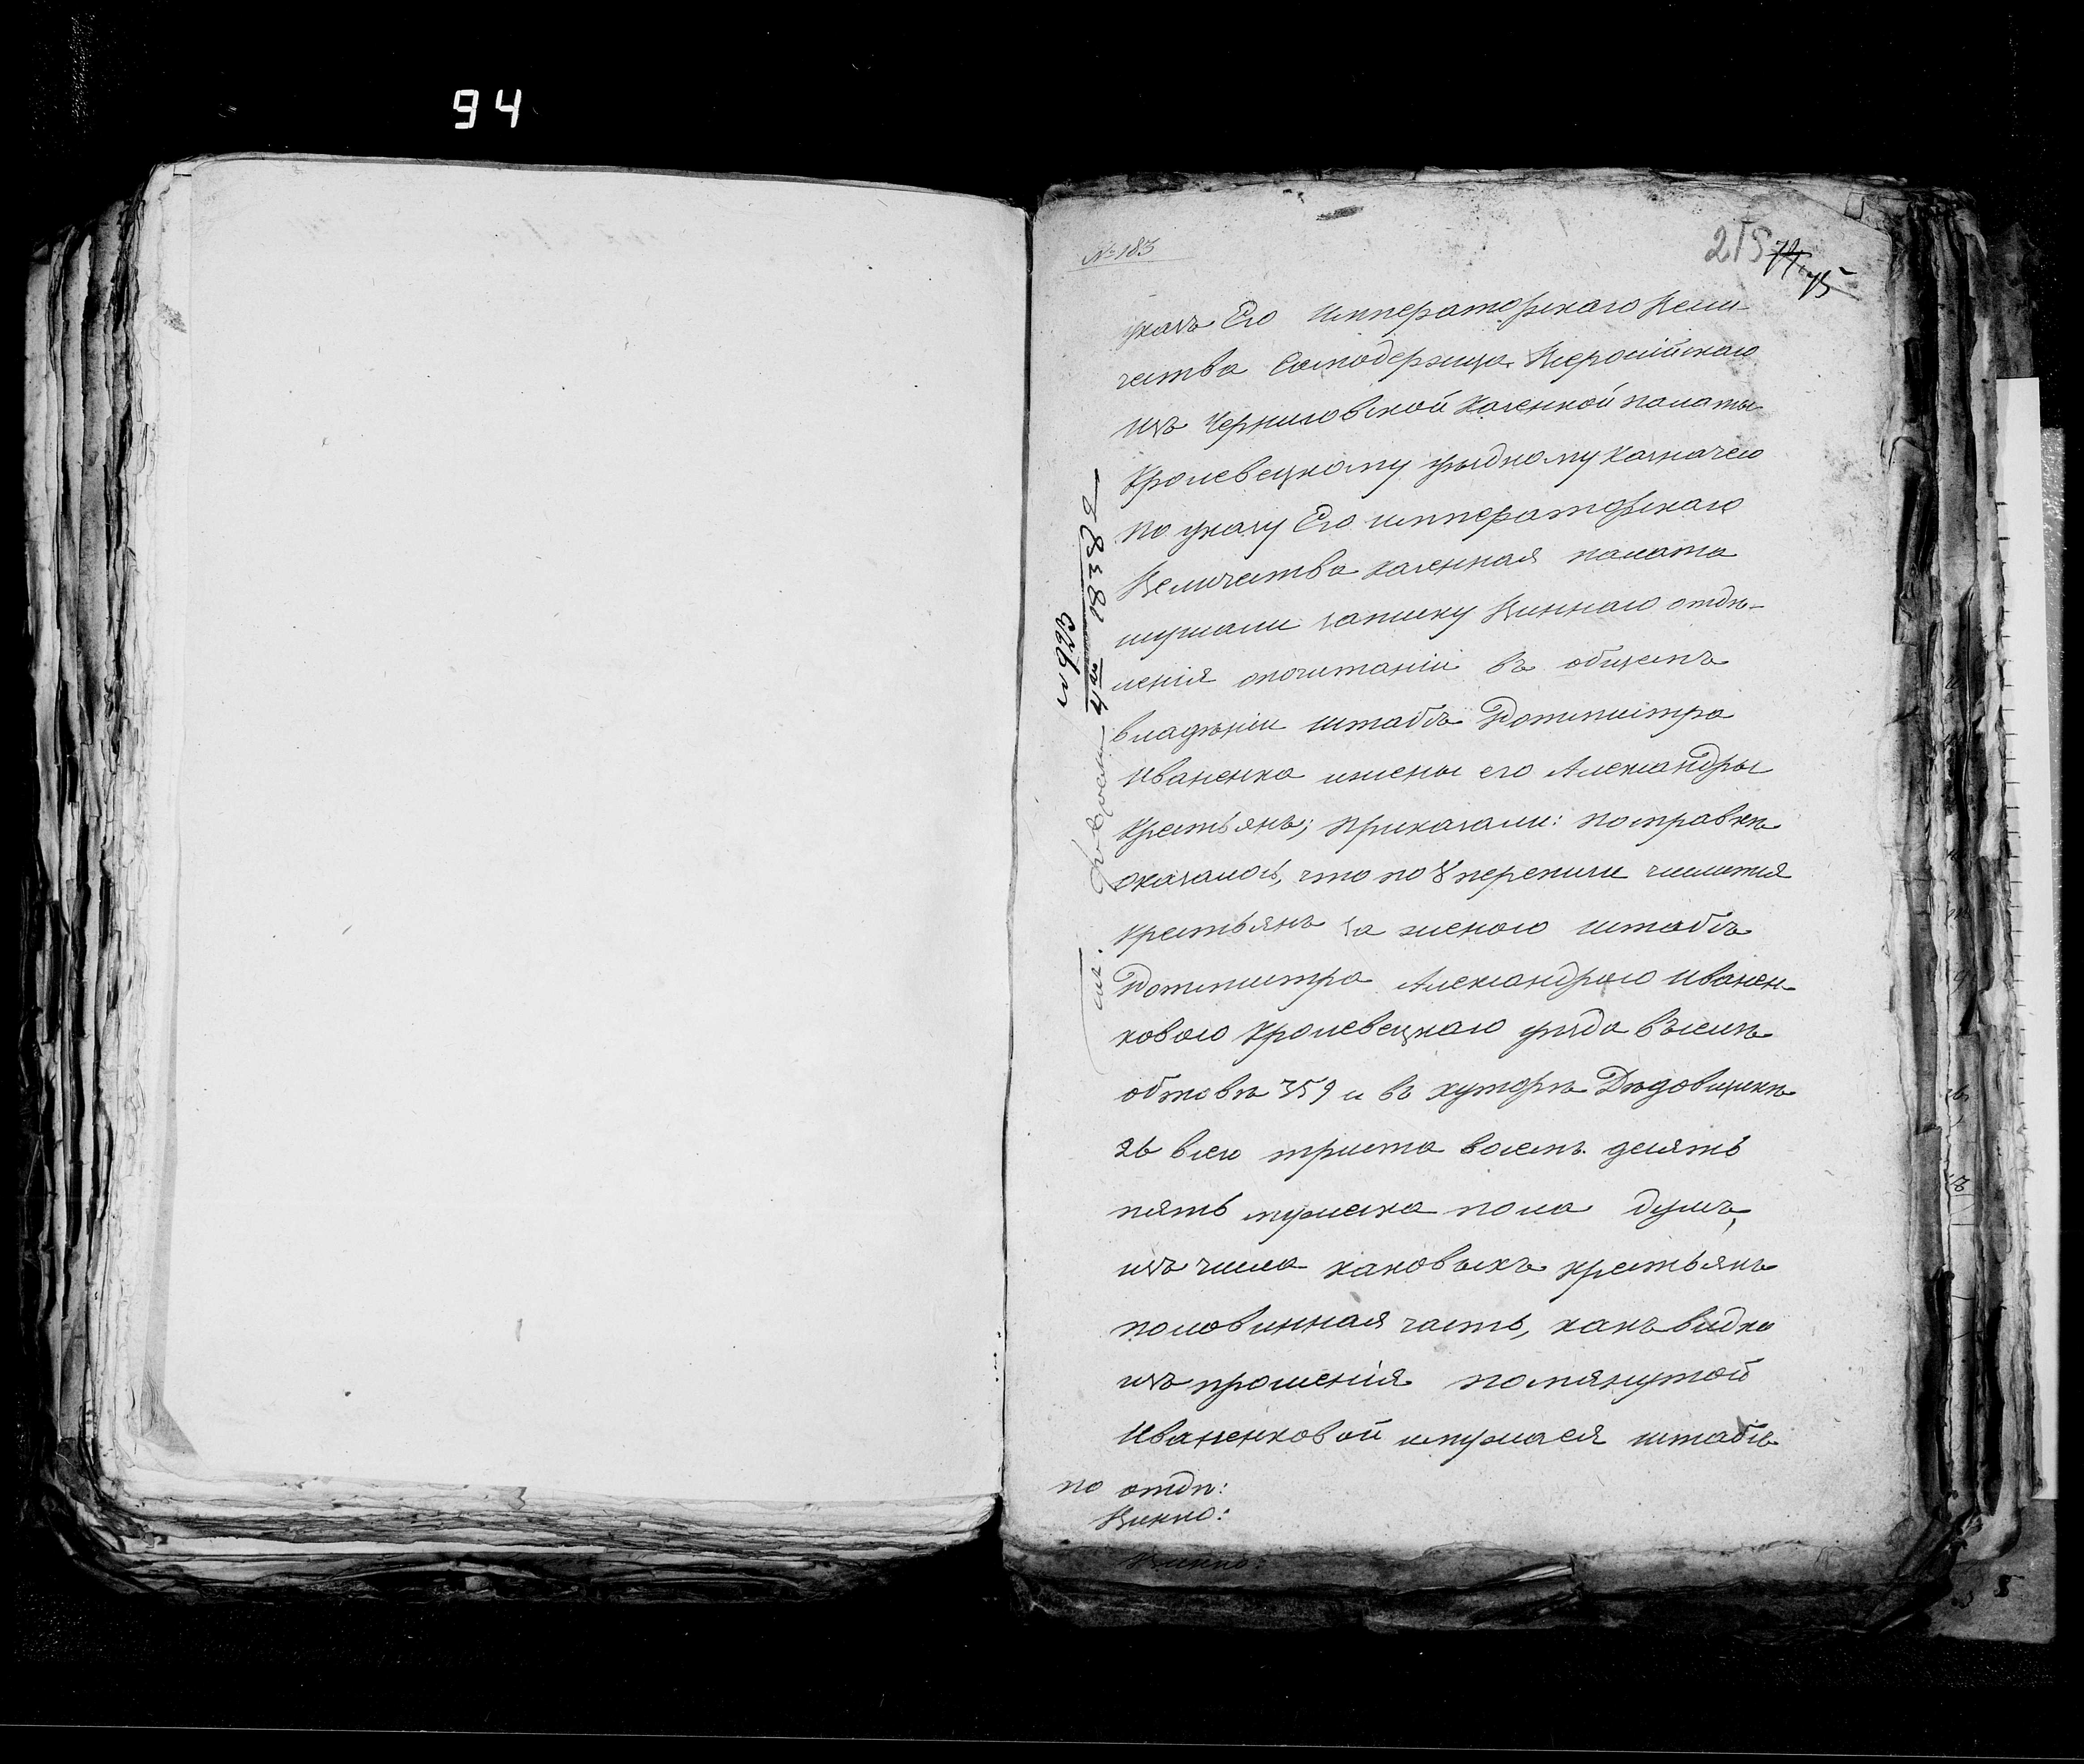 94
№ 183
215 74 75
указъ Его императорскаго Вели-
чества Самодержца Всеросiйскаго
изъ Черниговской казенной палаты
Кролевецкому уѣздному казначею
по указу Его императорскаго
Величества казенная палата
слушали записку Виннаго отдѣ-
ленiя осочитанiи въ общемъ
владѣнiи штабъ Ротмистра
Иваненка ижены его Александры
крестьянъ; приказали: посправкѣ
оказалось, что по 8 переписи числится
крестьянъ за женою штабъ
Ротмистра Александрою Иванен-
ковою Кролевецкаго уѣзда въселѣ
обтовѣ 359 и въ хуторѣ Дѣдовщинѣ
26 всего триста восемь десятъ
пять мужеска пола душъ,
изъ числа каковыхъ крестьянъ
половинная часть, какъ видно
изъ прошенiя помянутой
Иваненковой имужаея штабъ
по отдѣ:
Винно:
Винно:
февраля 4го 1838 г